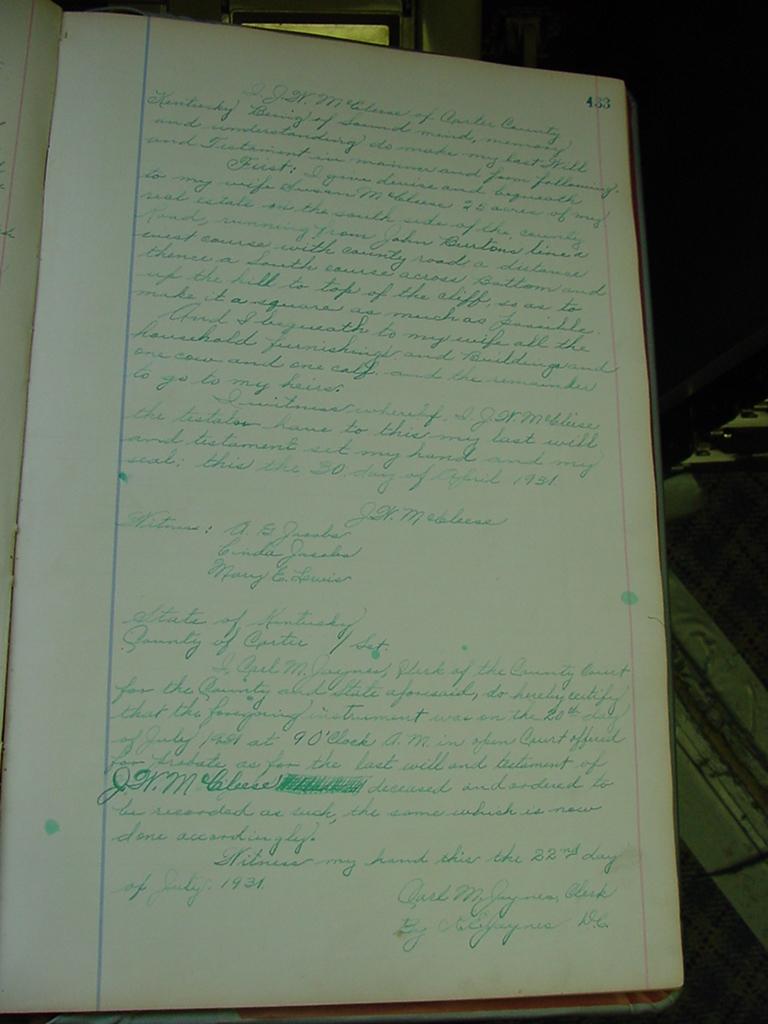 433
I, J. W. McCleese of Carter County
Kentucky Being of Sound mind, memory
and understanding do make my last Will
and Testament in manner and form following
First: I give devise and bequeath
to my wife Susan McCleese 25 acres of my
real estate on the south side of the county
Road, running from John Burtons line a
west course with county road a distance
thence a South course across Bottom and
up the hill to top of the cliff, so as to
make it a square as much as possible.
And I bequeath to my wife all the
household furnishings and Buildings and
one cow and one calf. and the remainder
to go to my heirs.
In witness whereby, I, J. W. McCleese
the testator have to this my last will
and testament set my hand and my
seal: this the 30. day of April 1931.
J. W. McCleese
Witness: A. G. Jacobs
Cinda Jacobs
Mary E. Lewis
State of Kentucky
County of Carter / Sct.
I, Carl M. Jaynes, Clerk of the County Court
for the County and State aforesaid, do hereby certify
that the foregoing instrument was on the 20th day
of July 1931 at 9 O'Clock A. M. in open Court offered
for probate as for the last will and testament of
J. W. McCleese deceased and ordered to
be recorded as such, the same which is now
done accordingly.
Witness my hand this the 22nd day
of July. 1931.
Carl M. Jaynes, Clerk
By Jaynes D.C.